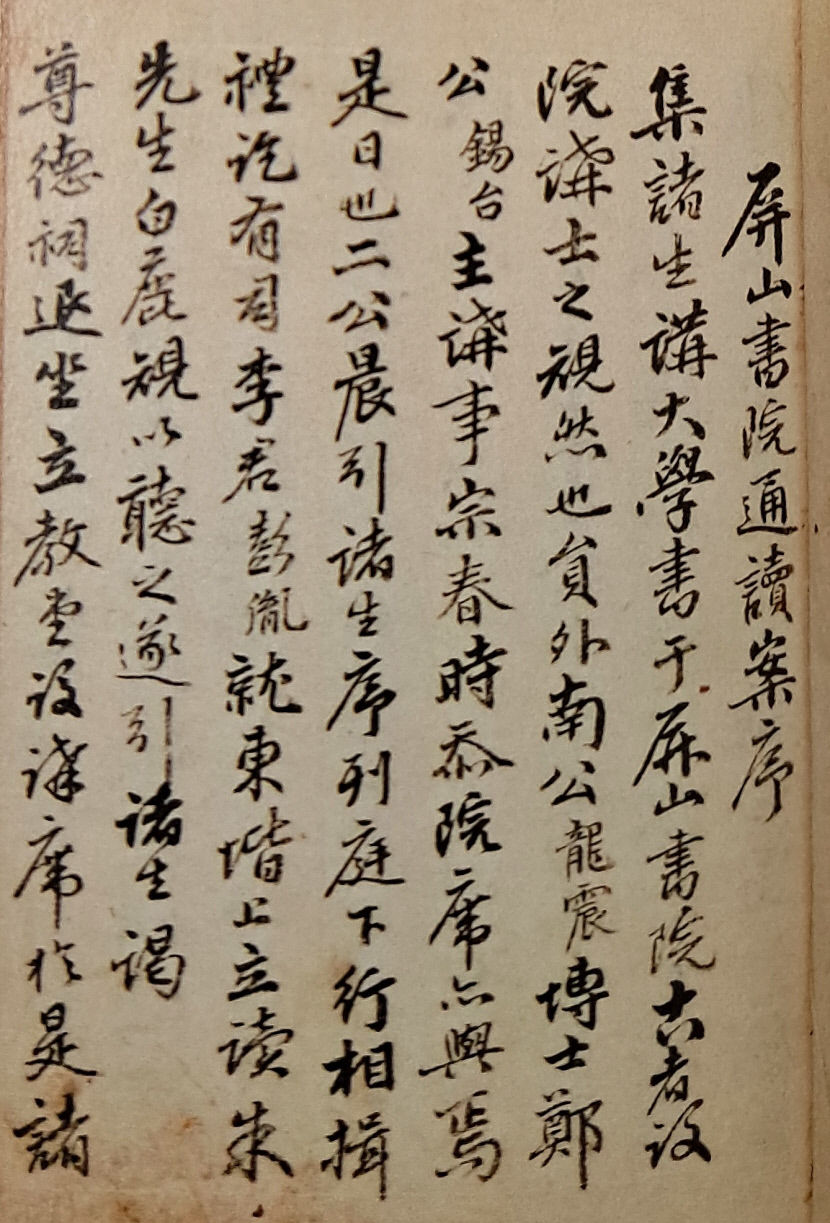 屏山書院通讀案序
集諸生講大學書于屏山書院古者設
院講士之規然也員外南公龍震博士鄭
公錫台主講事宗春時忝院席亦與焉
是日也二公晨引諸生序列庭下行相揖
禮訖有司李君彭胤就東堦上立讀朱
先生白鹿規以聽之遂引諸生謁
尊德祠退坐立教堂設講席於是諸